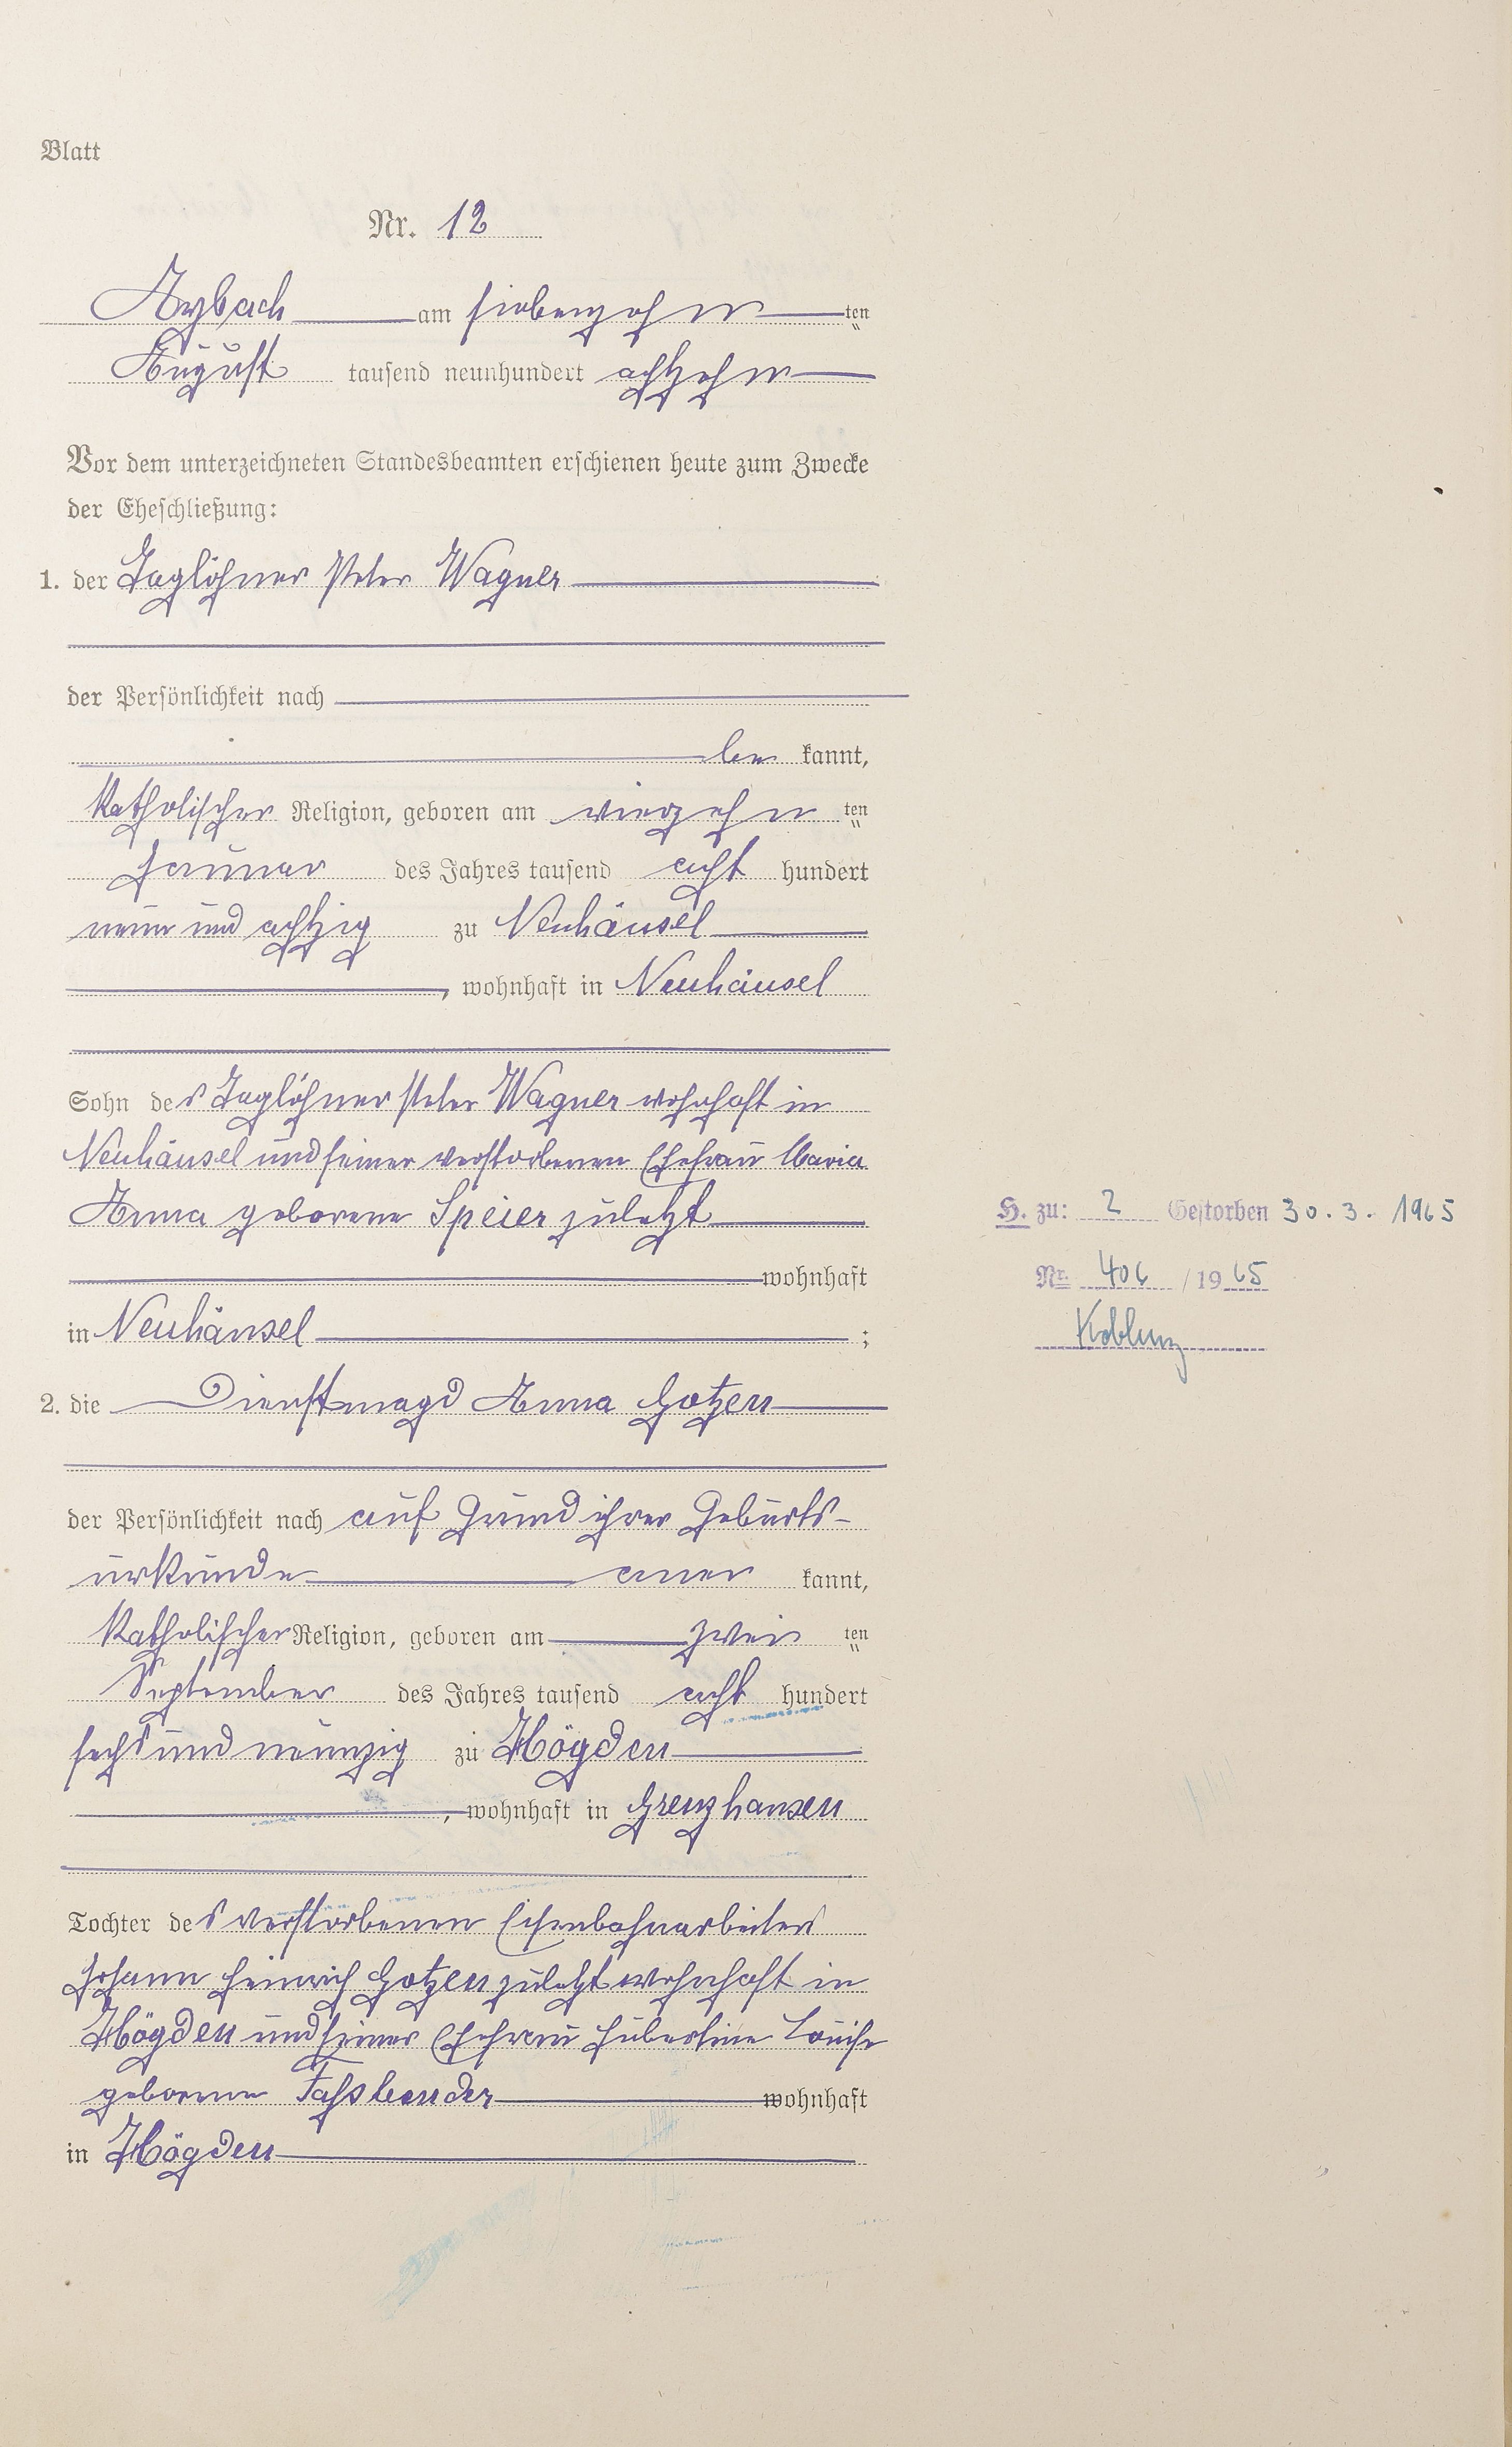 Blatt
Nr. 12
Arzbach am siebenzehn ten
August tausend neunhundert achtzehn
Vor dem unterzeichneten Standesbeamten erschienen heute zum Zwecke
der Eheschließung:
1. der Taglöhner Peter Wagner
der Persönlichkeit nach
be kannt,
katholischer Religion, geboren am vierzehn ten
Januar des Jahres tausend acht hundert
neun und achtzig zu Neuhäusel
, wohnhaft in Neuhäusel
Sohn des Taglöhner Peter Wagner wohnhaft in
Neuhäusel und seiner verstorbenen Ehefrau Maria
Anna geborene Speier zuletzt
wohnhaft
in Neuhäusel ;
2. die Dienstmagd Anna Gotzen
der Persönlichkeit nach auf Grund ihrer Geburts-
urkunde aner kannt,
katholischer Religion, geboren am zwei ten
September des Jahres tausend acht hundert
sechs und neunzig zu Högden
, wohnhaft in Grenzhausen
Tochter des verstorbenen Eisenbahnarbeiters
Johann Heinrich Gotzen zuletzt wohnhaft in
Högden und seiner Ehefrau Hubertine Louise
geborene Fassbender wohnhaft
in Högden
H. zu: 2 Gestorben 30.3. 1965
Nr. 406 / 19 65
Koblenz